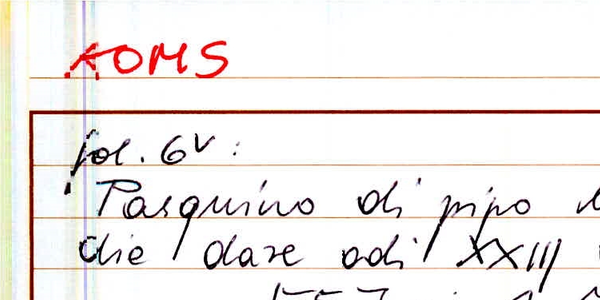 AOMS
fol. 6v:
Pasquino di pipo
die dare adi XXIII